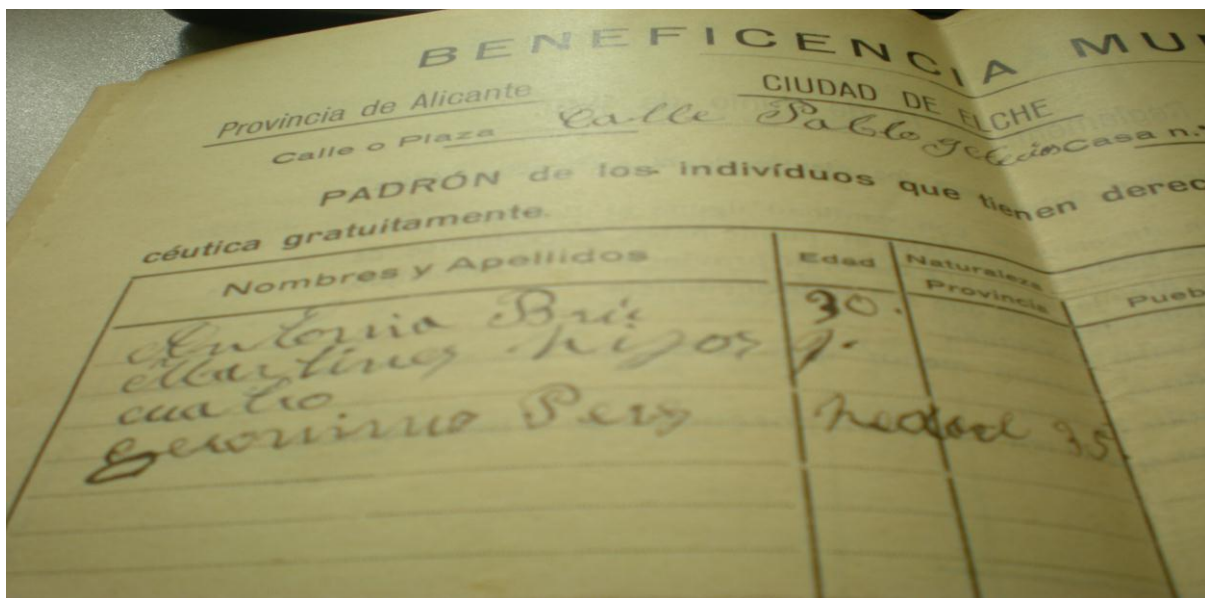 BENEFICENCIA MU
Provincia de Alicante CIUDAD DE ELCHE
Calle o Plaza Calle Pablo Casa n.º
PADRÓN de los individuos que tienen derec
céutica gratuitamente.
Nombres y Apellidos Edad Naturaleza
Provincia Pueb
Antonia Bric 30.
Martines hijos
cuatro
Geronimo Pers 35.